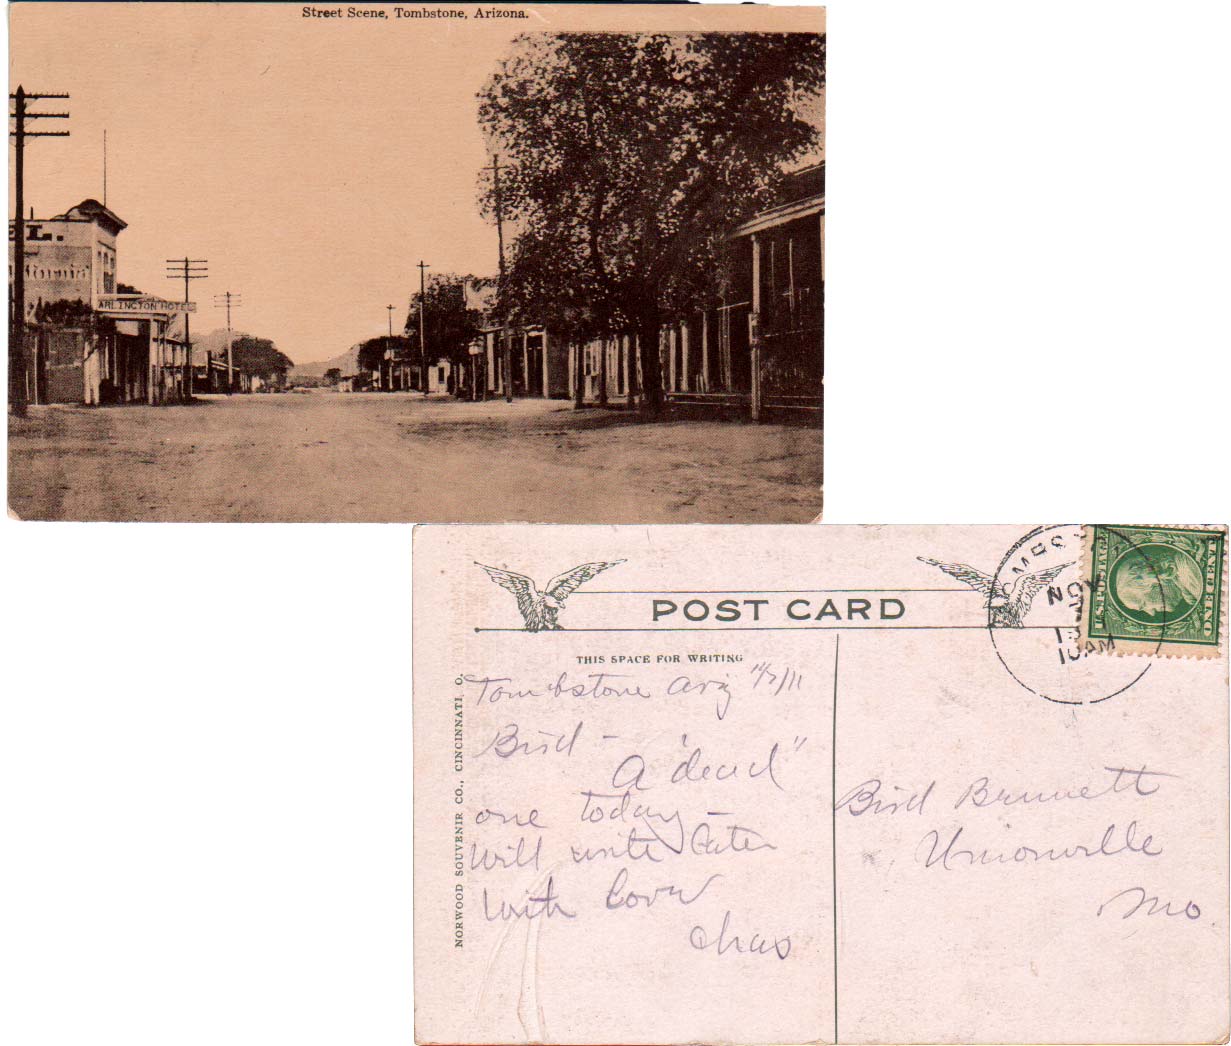 Street Scene, Tombstone, Arizona.
EL.
ARLINGTON HOTEL
POST CARD
THIS SPACE FOR WRITING
NORWOOD SOUVENIR CO., CINCINNATI, O.
NOV
10 AM
U.S. POSTAGE
ONE CENT
Tombstone Ariz 11/7/11
Bird -
A "dead"
one today -
Will write later
With Love
Chas
Bird Brunett
Unionville
Mo